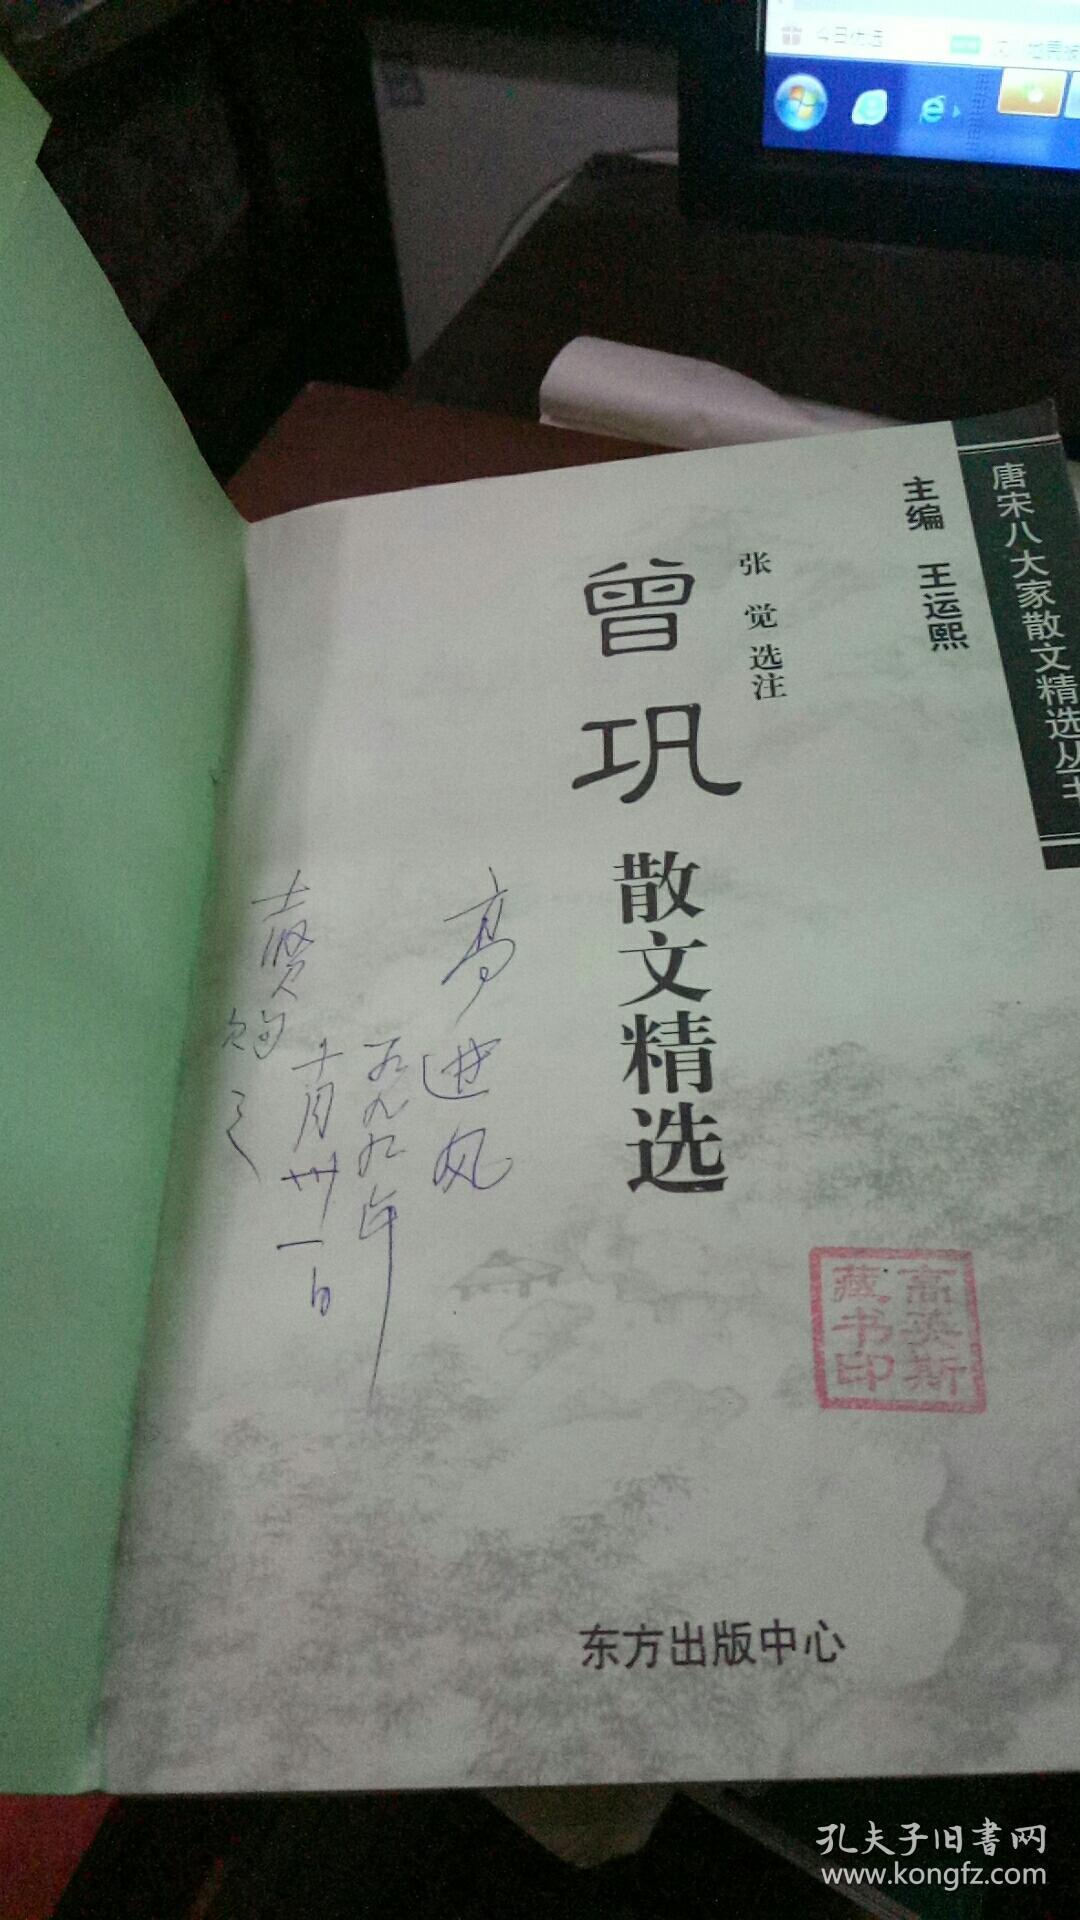 今日优选
唐宋八大家散文精选丛书
主编 王运熙
张觉选注
曾巩
散文精选
高进风
一九九九年
十月卅一日
高英斯
藏书印
东方出版中心
孔夫子旧書网
www.kongfz.com